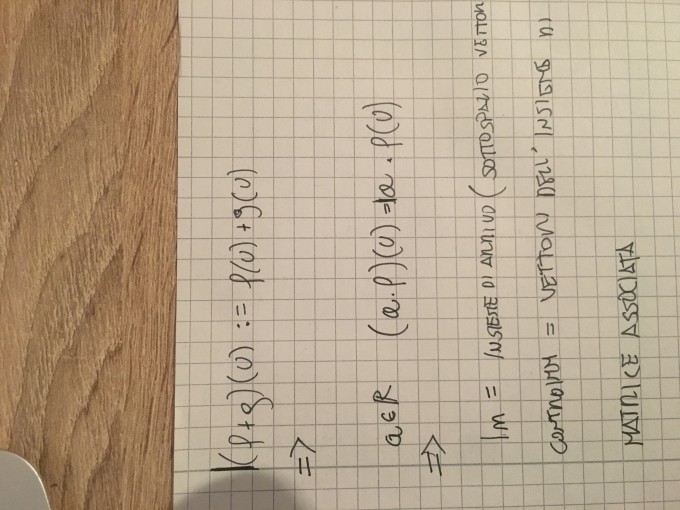 (f+g)(v) := f(v)+g(v)
=>
a∈R (a·f)(v)=a·f(v)
=>
Im = INSIEME DI ARRIVO (SOTTOSPAZIO VETTOR
CONTROIMM = VETTORI DELL'INSIEME DI
MATRICE ASSOCIATA